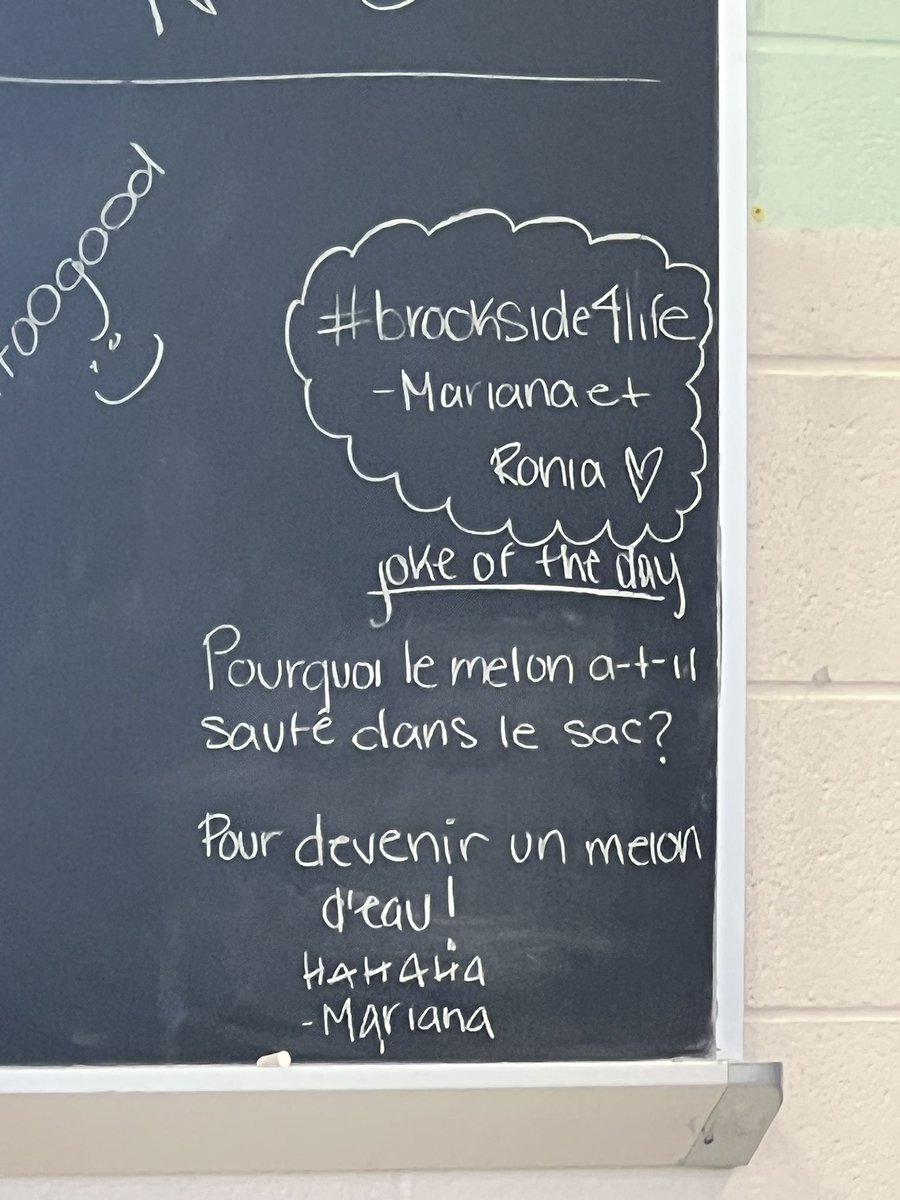 toogood
#brookside4life
-Mariana et
Ronia ♡
joke of the day
Pourquoi le melon a-t-il
sauté dans le sac?
Pour devenir un melon
d'eau!
HAHAHA
-Mariana